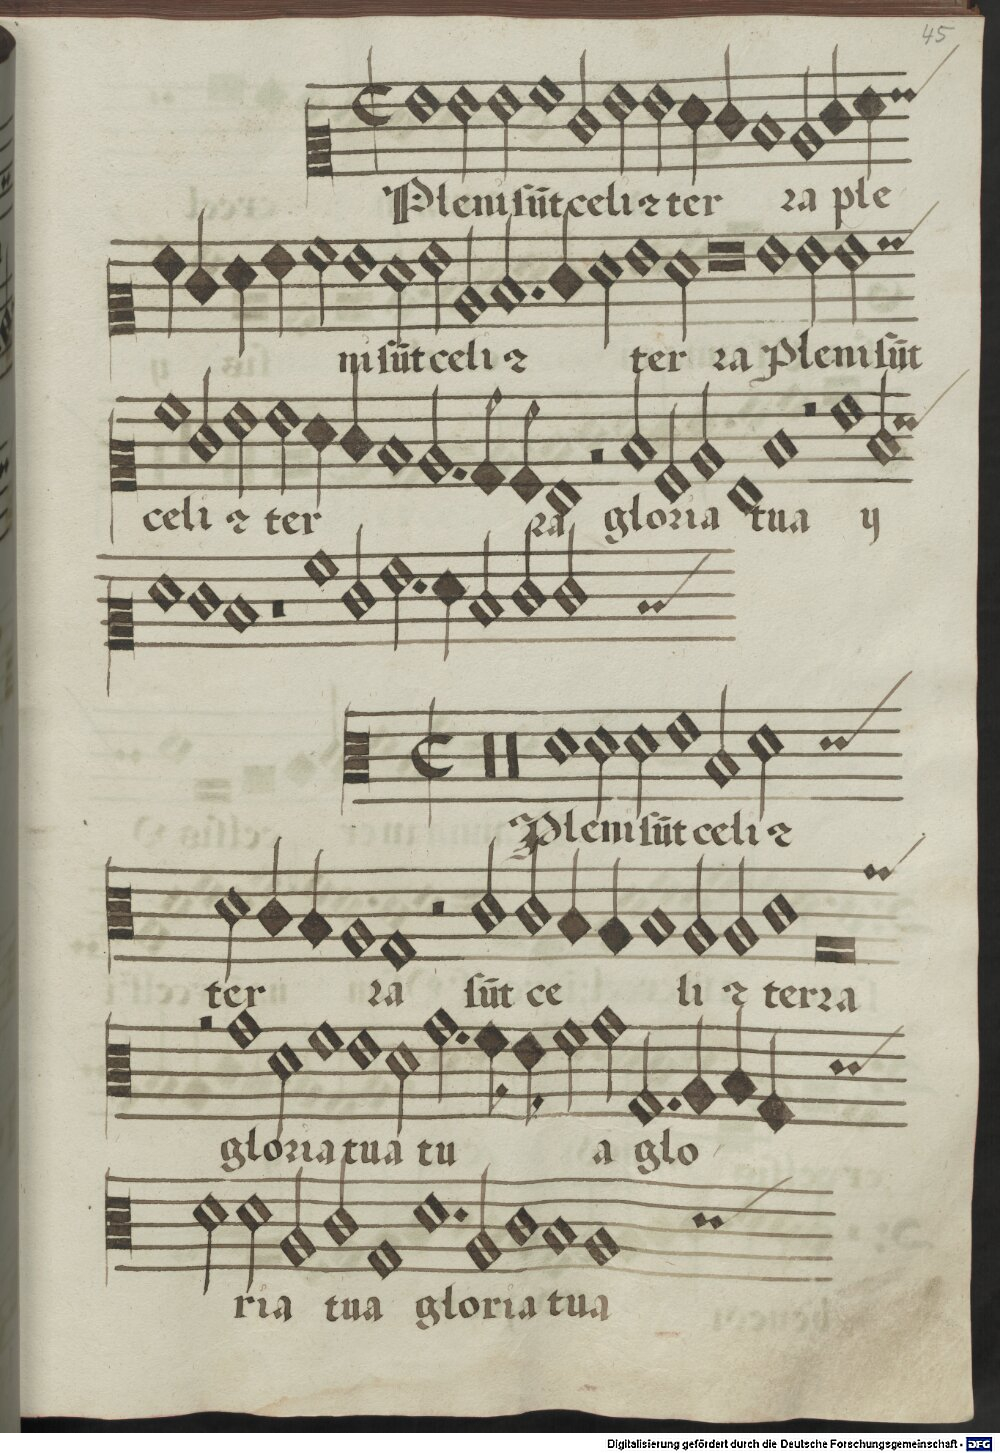 45
Pleni sūt celi ⁊ ter ra ple
ni sūt celi ⁊ ter ra Pleni sūt
celi ⁊ ter ra gloria tua ij
Pleni sūt celi ⁊
ter ra sūt ce li ⁊ terra
gloria tua tu a glo
ria tua gloria tua
Digitalisierung gefördert durch die Deutsche Forschungsgemeinschaft - DFG